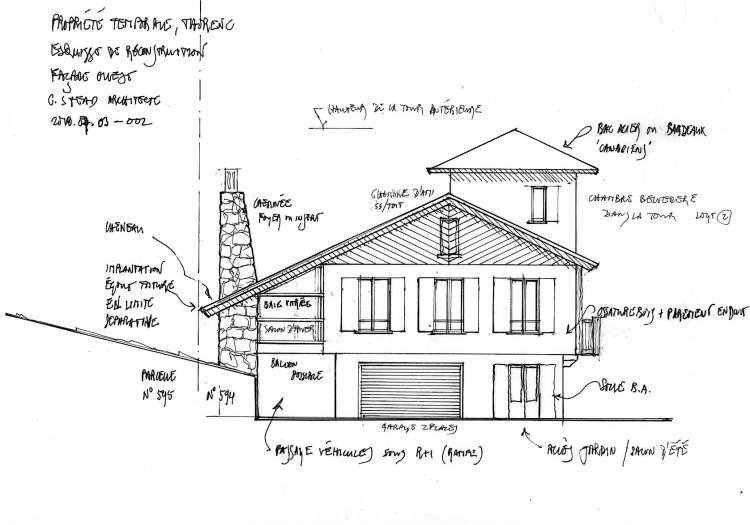 PROPRIÉTÉ TEMPORALE, TAURENC
ESQUISSE DE RÉCONSTRUCTION
FAÇADE OUEST
C. STEAD ARCHITECTE
2010.09.03 - 002
HAUTEUR DE LA TOUR ANTÉRIEURE
BAC ACIER OU BARDEAUX
'CANADIENS'
CHAMBRE D'AMI
SS/TOIT
CHEMINÉE
FOYER OU INSERT
CHAMBRE BELVEDERE
DANS LA TOUR LOGT 2
CHÉNEAU
IMPLANTATION
ÉGOUT TOITURE
EN LIMITE
SÉPARATIVE
BAIE VITRÉE
SALON D'HIVER
OSSATURE BOIS + PAREMENT ENDUIT
BALCON
POSSIBLE
PARCELLE
N° 595
N° 594
SOCLE B.A.
GARAGE 2 PLACES
PASSAGE VÉHICULES SOUS R+1 (RAMPE)
ACCÈS JARDIN / SALON D'ÉTÉ